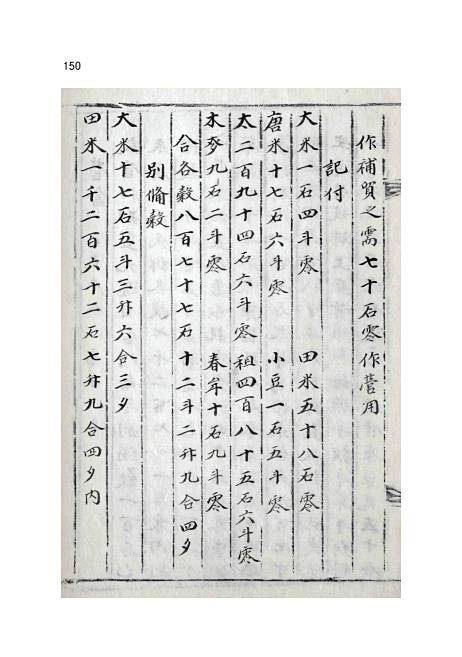 150
作補質之需七十石零作營用
記付
大米一石四斗零 田米五十八石零
唐米十七石六斗零 小豆一石五斗零
太二百九十四石六斗零 租四百八十五石六斗零
木麥九石二斗零 春牟十石九斗零
合各穀八百七十七石十二斗二升九合四夕
別備穀
大米十七石五斗三升六合三夕
田米一千二百六十二石七升九合四夕內